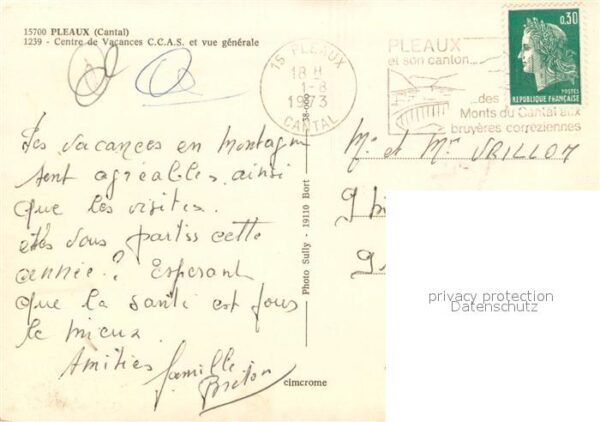 15700 PLEAUX (Cantal)
1239 - Centre de Vacances C.C.A.S. et vue générale
15 PLEAUX
18 H
1-8
1973
CANTAL
PLEAUX
et son canton...
...des
Monts du Cantal aux
bruyères corréziennes
0,30
POSTES
REPUBLIQUE FRANÇAISE
Les vacances en montagn
sont agréables ainsi
que les visites.
etes vous partis cette
année? Espérant
que la santé est pour
le mieux.
Amitiés famille
Breton
Me et Mr VRILLON
Photo Sully - 19110 Bort
cimcrome
privacy protection
Datenschutz